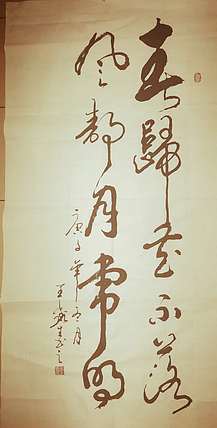 春歸花不落
風靜月常明
庚子年冬月